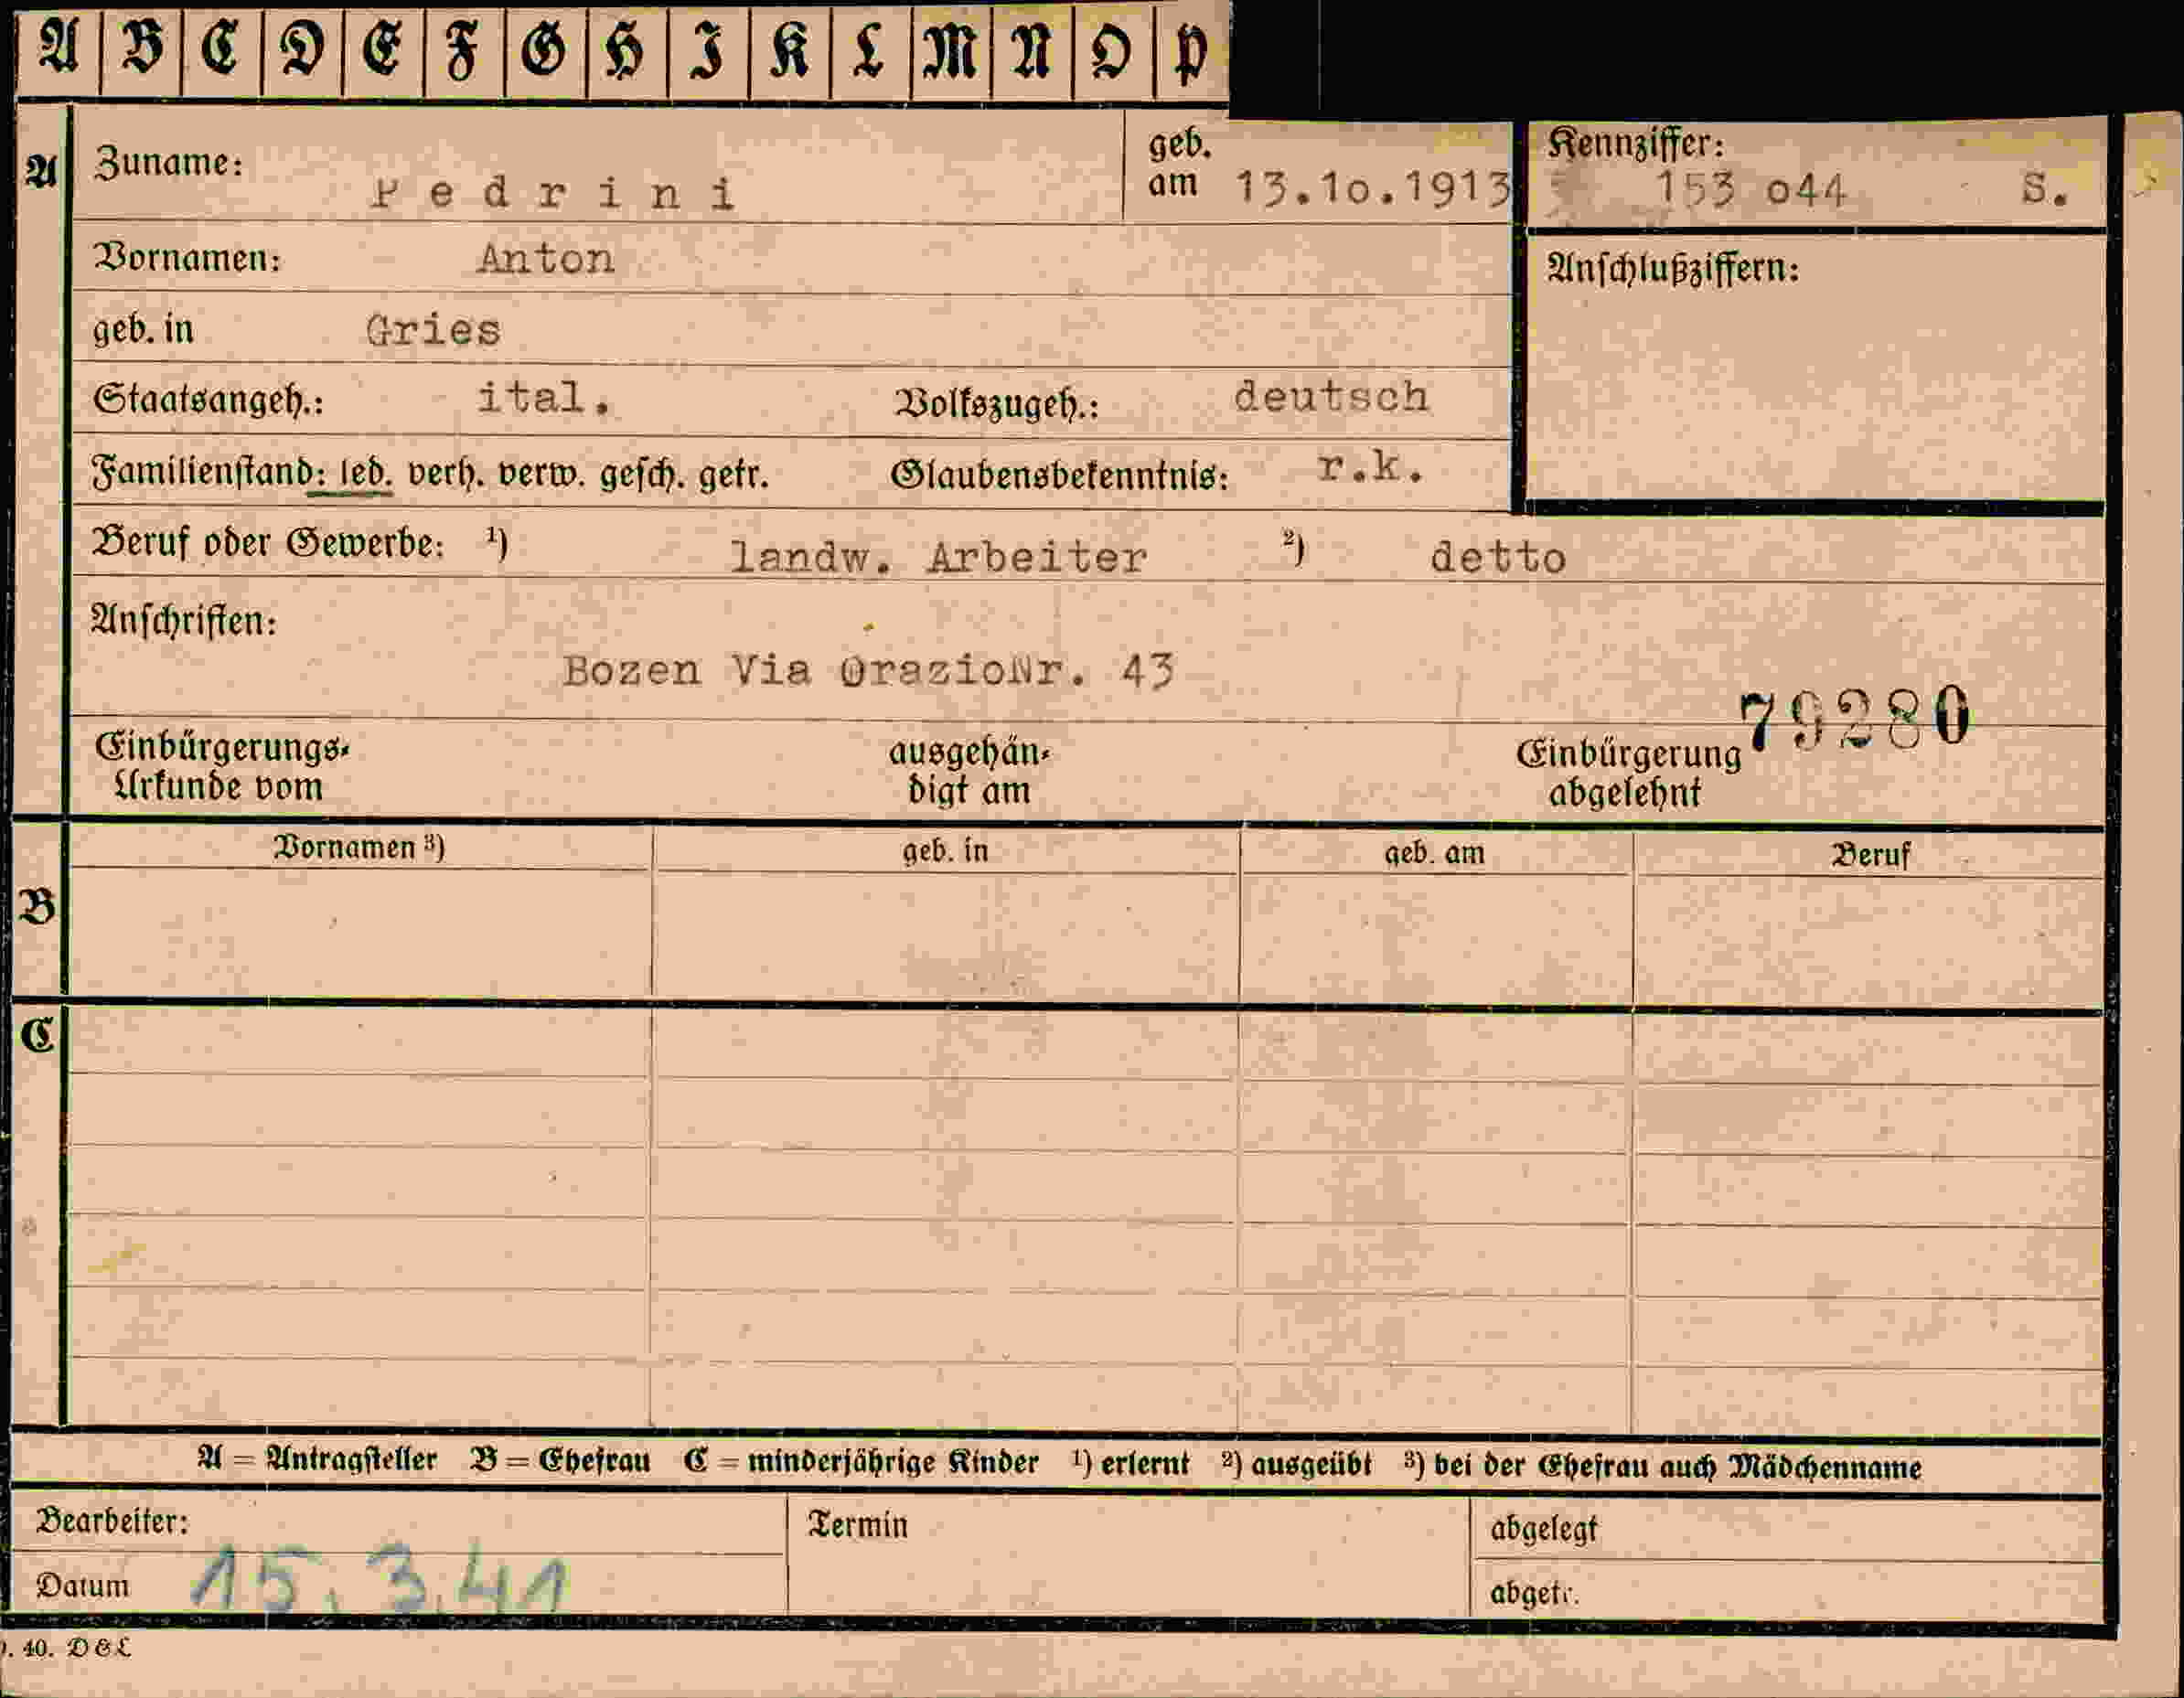 A B C D E F G H I K L M N O P
A Zuname: Pedrini geb. am 13.1o.1913 Kennziffer: 153 o44 S.
Vornamen: Anton Anschlußziffern:
geb. in Gries
Staatsangeh.: ital. Volkszugeh.: deutsch
Familienstand: led. verh. verw. gesch. getr. Glaubensbekenntnis: r.k.
Beruf oder Gewerbe: ¹) landw. Arbeiter ²) detto
Anschriften:
Bozen Via OrazioNr. 43
79280
Einbürgerungs- ausgehän- Einbürgerung
Urkunde vom digt am abgelehnt
Vornamen ³) geb. in geb. am Beruf
B
C
A = Antragsteller B = Ehefrau C = minderjährige Kinder ¹) erlernt ²) ausgeübt ³) bei der Ehefrau auch Mädchenname
Bearbeiter: Termin abgelegt
Datum 15.3.41 abgetr.
. 40. D&L